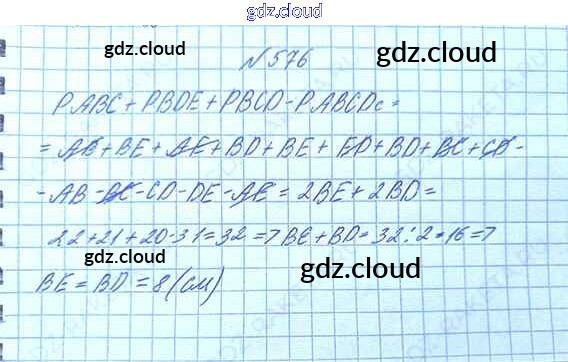 gdz.cloud
gdz.cloud gdz.cloud
N 576
PABC + PBDE + PBCD - PABCDE =
= AB + BE + AE + BD + BE + ED + BD + BC + CD -
- AB - BC - CD - DE - AE = 2BE + 2BD =
22 + 21 + 20 - 31 = 32 => BE + BD = 32 : 2 = 16 =>
gdz.cloud gdz.cloud
BE = BD = 8 (см)
gdz.cloud